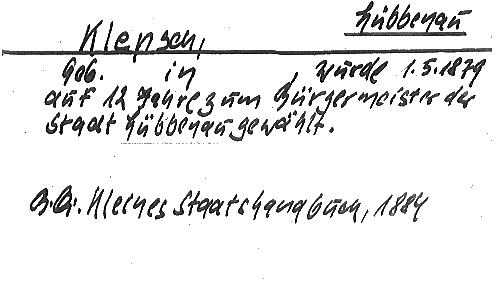 Lübbenau
Klepsch,
geb. in , wurde 1.5.1879
auf 12 Jahre zum Bürgermeister der
Stadt Lübbenau gewählt.
B.Q. Kleines Staatshandbuch, 1884